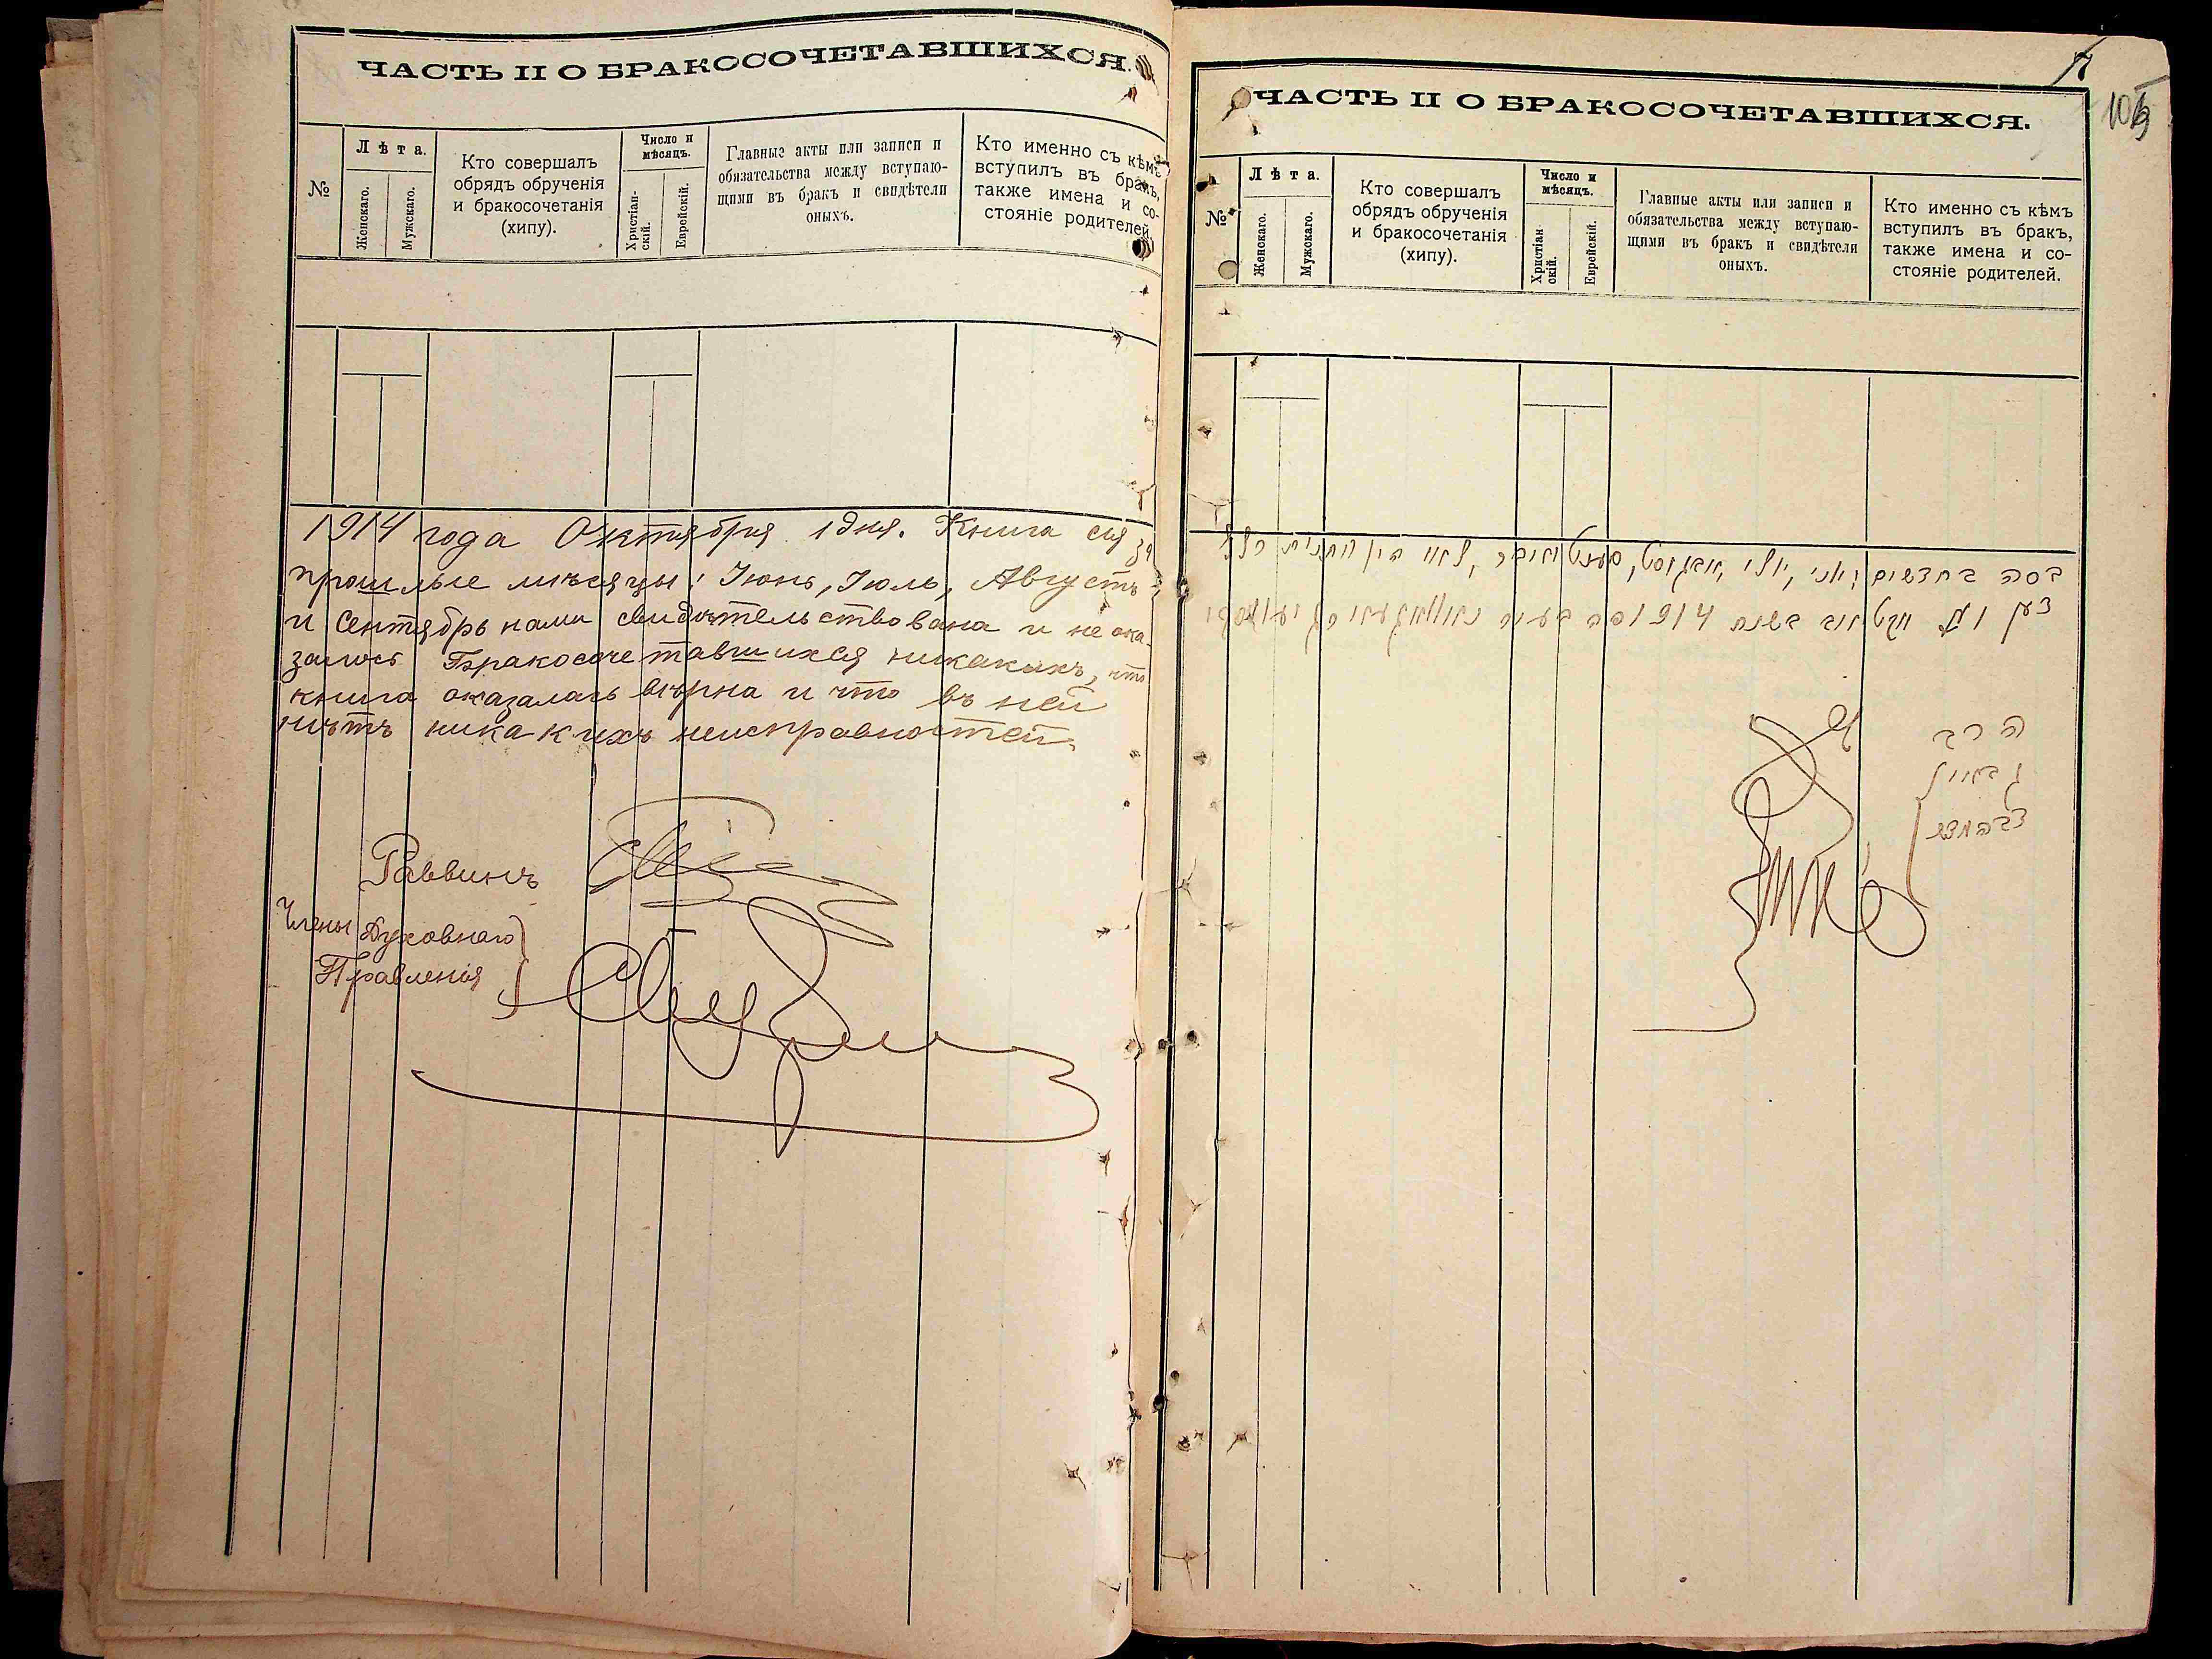 ЧАСТЬ II О БРАКОСОЧЕТАВШИХСЯ.
№
Лѣта.
Женскаго.
Мужскаго.
Кто совершалъ
обрядъ обрученія
и бракосочетанія
(хипу).
Число и
мѣсяцъ.
Христіан-
скій.
Еврейскій.
Главныс акты или записи и
обязательства между вступаю-
щими въ бракъ и свидѣтели
оныхъ.
Кто именно съ кѣмъ
вступилъ въ бракъ,
также имена и со-
стояніе родителей.
1914 года Октября 1 дня. Книга сія за
прошлые мѣсяцы: Іюнь, Іюль, Августъ
и Сентябрь нами свидѣтельствована и не ока-
залось Бракосочетавшихся никакихъ, что
книга оказалась вѣрна и что въ ней
нѣтъ никакихъ неисправностей.
Раввинъ
Члены Духовнаго
Правленія
ЧАСТЬ II О БРАКОСОЧЕТАВШИХСЯ.
№
Лѣта.
Женскаго.
Мужскаго.
Кто совершалъ
обрядъ обрученія
и бракосочетанія
(хипу).
Число и
мѣсяцъ.
Христіан-
скій.
Еврейскій.
Главные акты или записи и
обязательства между вступаю-
щими въ бракъ и свидѣтели
оныхъ.
Кто именно съ кѣмъ
вступилъ въ бракъ,
также имена и со-
стояніе родителей.
בחדשים יוני, יולי, אבגוסט, סענטאבר,
בשנת 1914
הרב